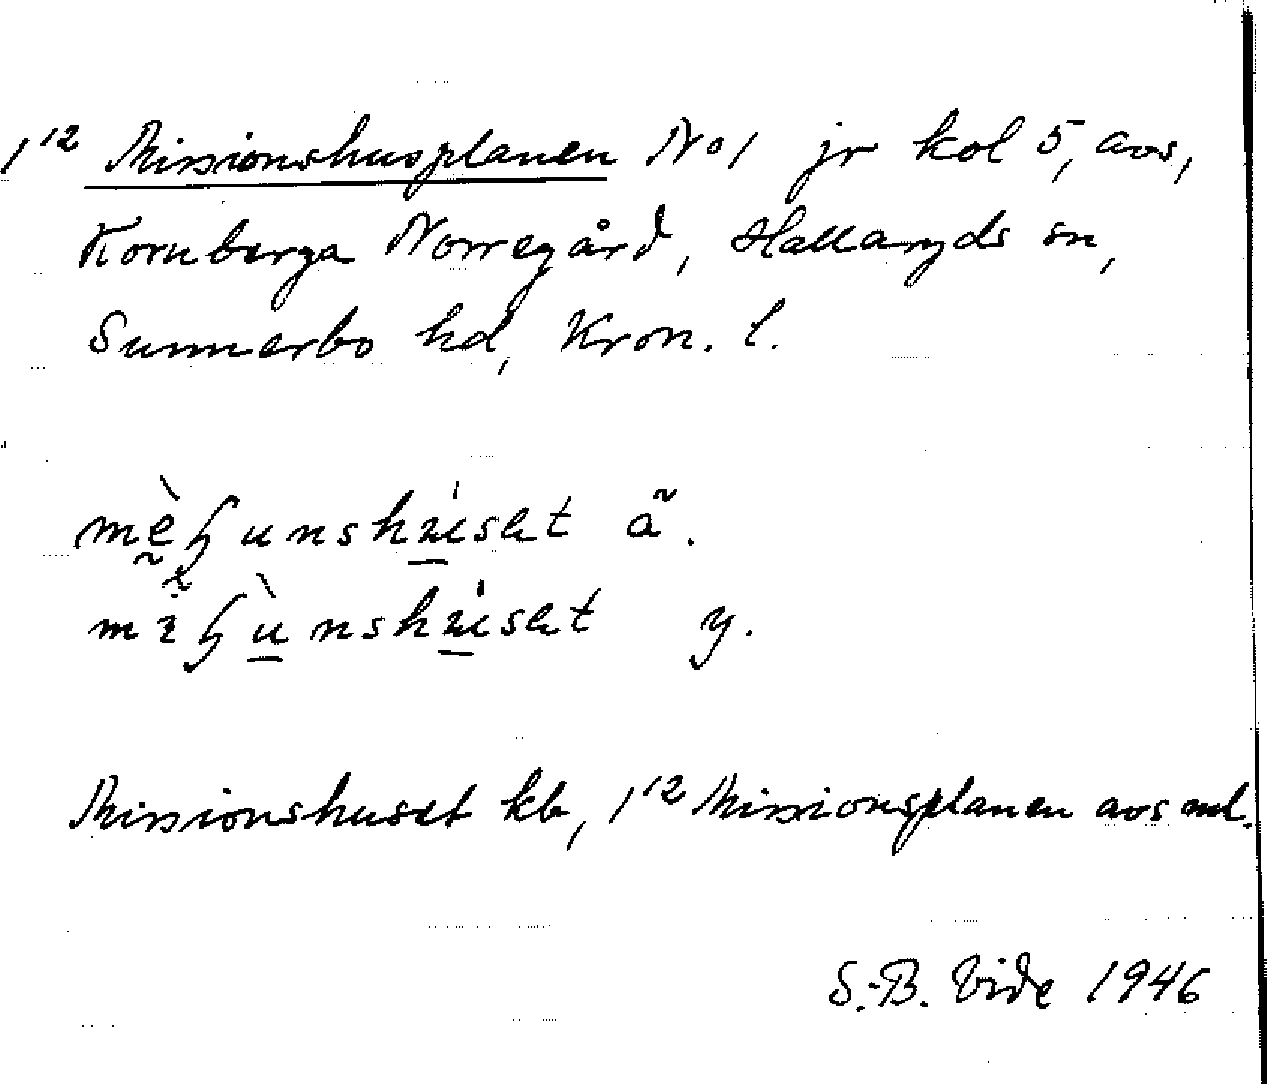 1¹² Missionshusplanen No 1 jr kol 5, avs,
Kornberga Norregård, Hallaryds sn,
Sunnerbo hd, Kron. l.
ã.
y.
Missionshuset kb, 1¹² Missionsplanen avs ml.
S.-B. Vide 1946